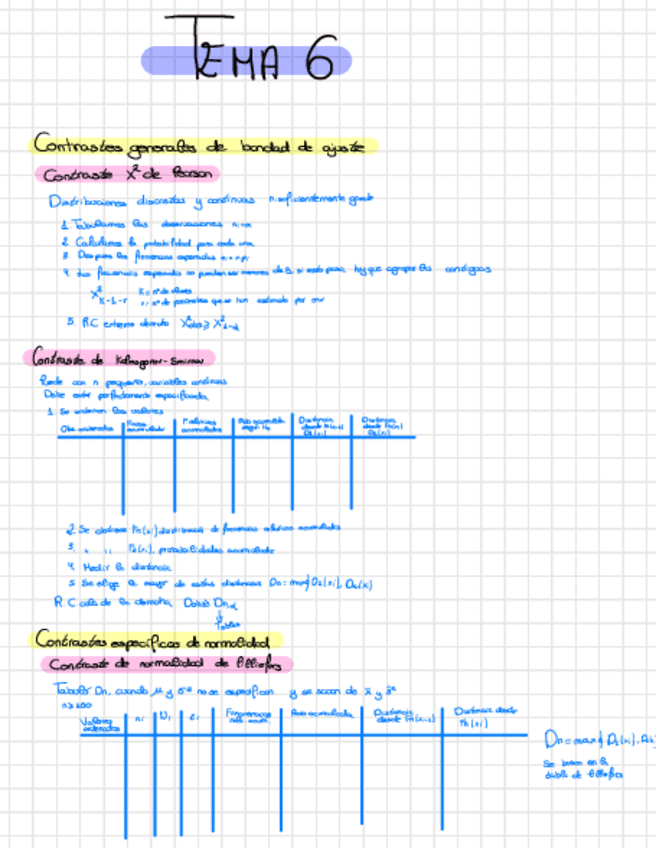 TEMA 6
Contrastes generales de bondad de ajuste
Contraste X² de Pearson
Distribuciones discretas y continuas n suficientemente grande
1. Tabulamos las observaciones
2. Calculamos la probabilidad para cada una
3. Después las frecuencias esperadas
4. Las frecuencias esperadas no pueden ser menores de 5, si esto pasa, hay que agrupar las contiguas
X²k-1-r k = nº de clases
r = nº de parámetros que se han estimado por
5. R.C extremo derecho X²obs ≥ X²1-α
Contraste de Kolmogorov-Smirnov
Puede con n pequeños, variables continuas
Debe estar perfectamente especificada
1. Se ordenan los valores
Obs ordenadas
acumulada
F relativas acumuladas
Prob acumulada según H₀
Distancia desde
D₁(xi)
Distancia desde Fn(xi)
D₂(xi)
2. Se obtiene Fn(xi) distribución de frecuencias relativas acumuladas
3. " " F₀(xi), probabilidades acumuladas
4. Medir la distancia
5. Se elige la mayor de estas distancias Dn = max{D₁(xi), D₂(xi)
R.C cola de la derecha
tablas
Contrastes específicos de normalidad
Contraste de normalidad de lilliefors
Tabular Dn, cuando μ y σ² no se especifican y se sacan de x̄ y
Valores ordenados
ni
Prob acumulada
Distancia desde Fn(xi-1)
Distancia desde Fn(xi)
Dn = max{ D₁(xi),
Se busca en la
tabla de lilliefors